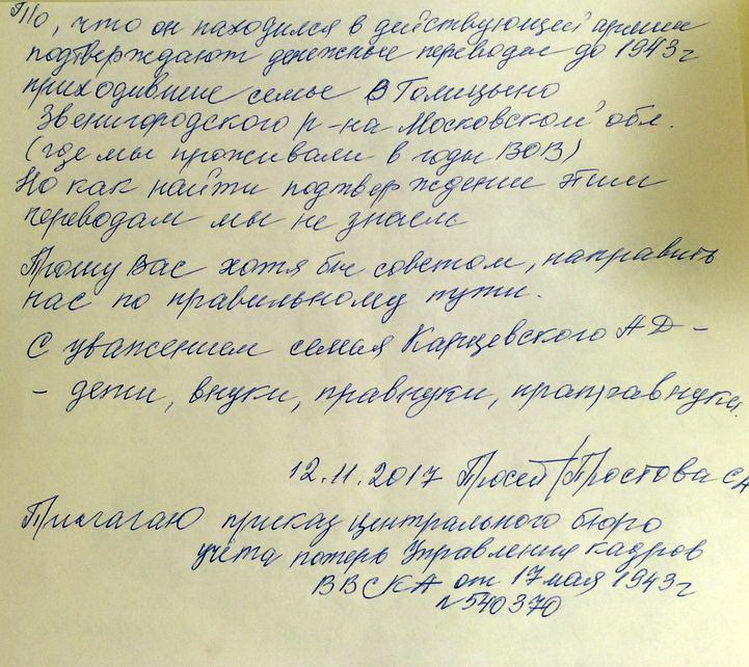 То, что он находился в действующей армии
подтверждают денежные переводы до 1943г
приходившие семье в Голицыно
Звенигородского р-на Московской обл.
(где мы проживали в годы ВОВ)
Но как найти подтверждение этим
переводам мы не знаем
Прошу Вас хотя бы советом, направить
нас по правильному пути.
С уважением семья Карцевского АД –
– дети, внуки, правнуки, праправнуки.
12.11.2017 /Простова СА
Прилагаю приказ центрального бюро
учёта потерь Управления кадров
ВВСКА от 17 мая 1943г
№540370